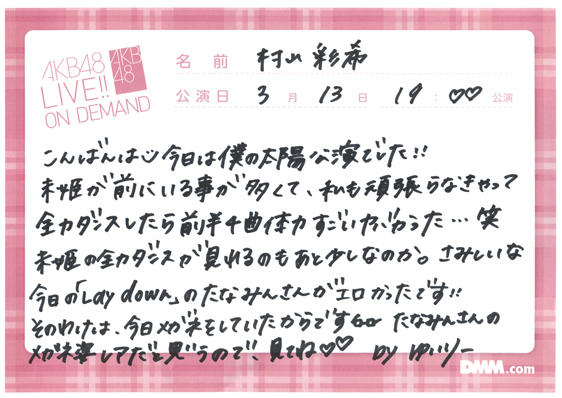 AKB48
LIVE!!
ON DEMAND
AKB
48
名前 村山 彩希
公演日 3月13日 19:♡♡公演
こんばんは☺今日は僕の太陽公演でした!!
未姫が前にいる事が多くて、私も頑張らなきゃって
全力ダンスしたら前半4曲体力すごいつかった…笑
未姫の全力ダンスが見れるのもあと少しなのか。さみしいな
今日の「Lay down」のたなみんさんがエロかったです!!
そのわけは、今日メガネをしていたからです👓 たなみんさんの
メガネ姿レアだと思うので、見てね♡♡ by ゆいりー
DMM.com